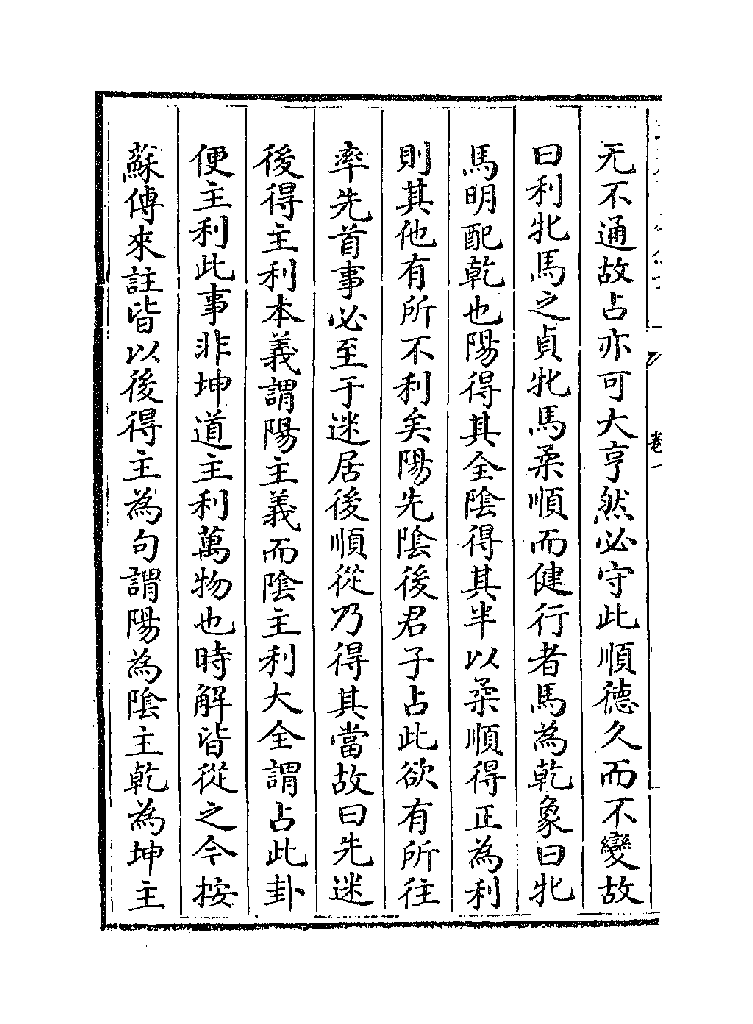 无不通故占亦可大亨然必守此順德久而不變故
曰利牝馬之貞牝馬柔順而健行者馬為乾象曰牝
馬明配乾也陽得其全陰得其半以柔順得正為利
則其他有所不利矣陽先陰後君子占此欲有所往
率先首事必至于迷居後順從乃得其當故曰先迷
後得主利本義謂陽主義而陰主利大全謂占此卦
便主利此事非坤道主利萬物也時解皆從之今按
蘇傳來註皆以後得主為句謂陽為陰主乾為坤主
卷一